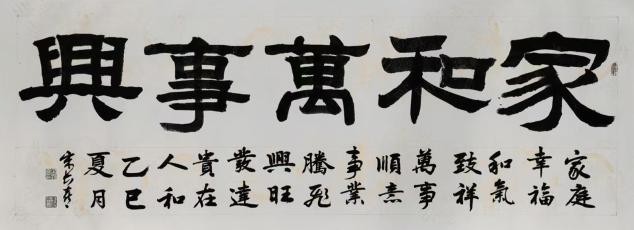 家和萬事興
家庭
幸福
和氣
致祥
萬事
順意
事業
騰飛
興旺
發達
貴在
人和
乙巳
夏月